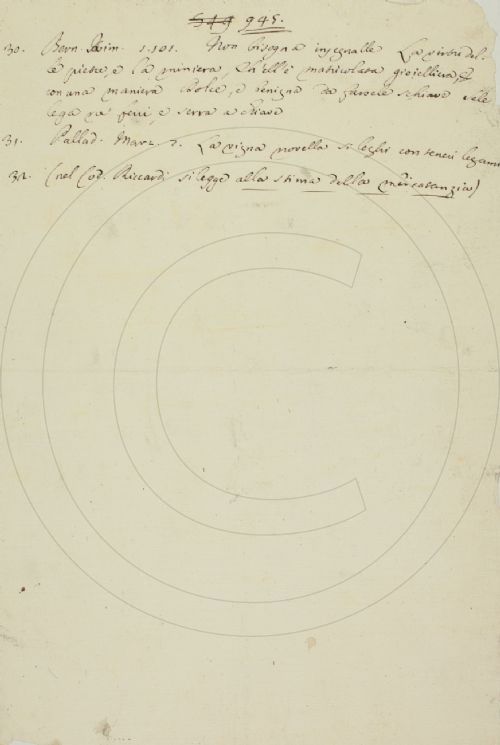 549 945.
30. Bern. Rim. 1.101. Non bisogna insegnalle La virtù del-
le pietre, e la miniera, Ch'ell'è matricolata gioielliera, E
con una maniera dolce, e benigna da farsele schiave Le
lega ne' ferri, e serra a chiave
31. Pallad. Marz. 7. La vigna novella si leghi con teneri legami
32. (nel Cod. Riccardi si legge alla stima della mercatanzia)